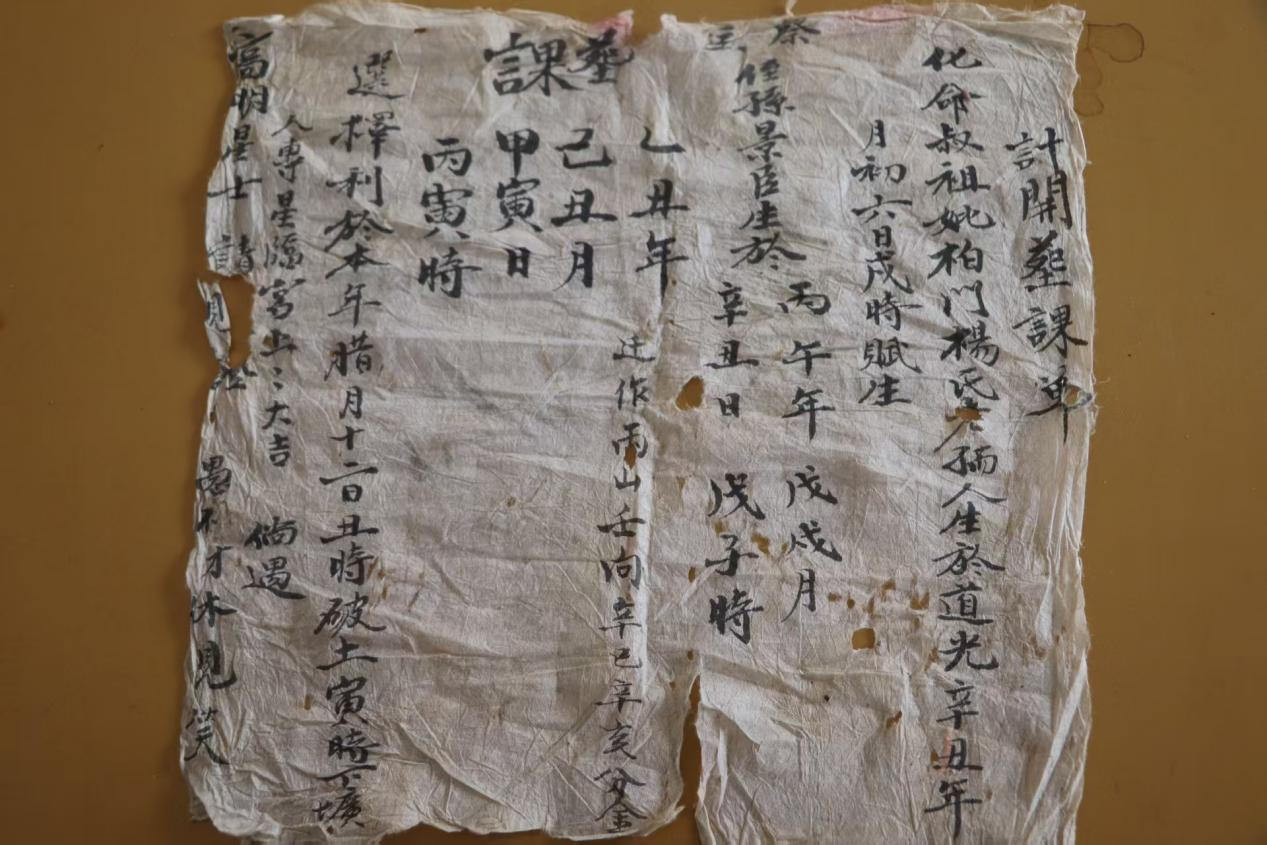 計開塟課單
化命叔祖妣柏門楊氏老孺人生於道光辛丑年
月初六日戌時賦生
祭主
侄孫景臣生於
丙午年 戊戌月
辛丑日 戊子時
塟課
乙丑年
己丑月
甲寅日
丙寅時
迁作丙山壬向辛巳辛亥分金
選擇利於本年腊月十二日丑時破土寅時下壙
人專星臨富上〻大吉 倘遇
高明星士 請見 愚不才休見笑